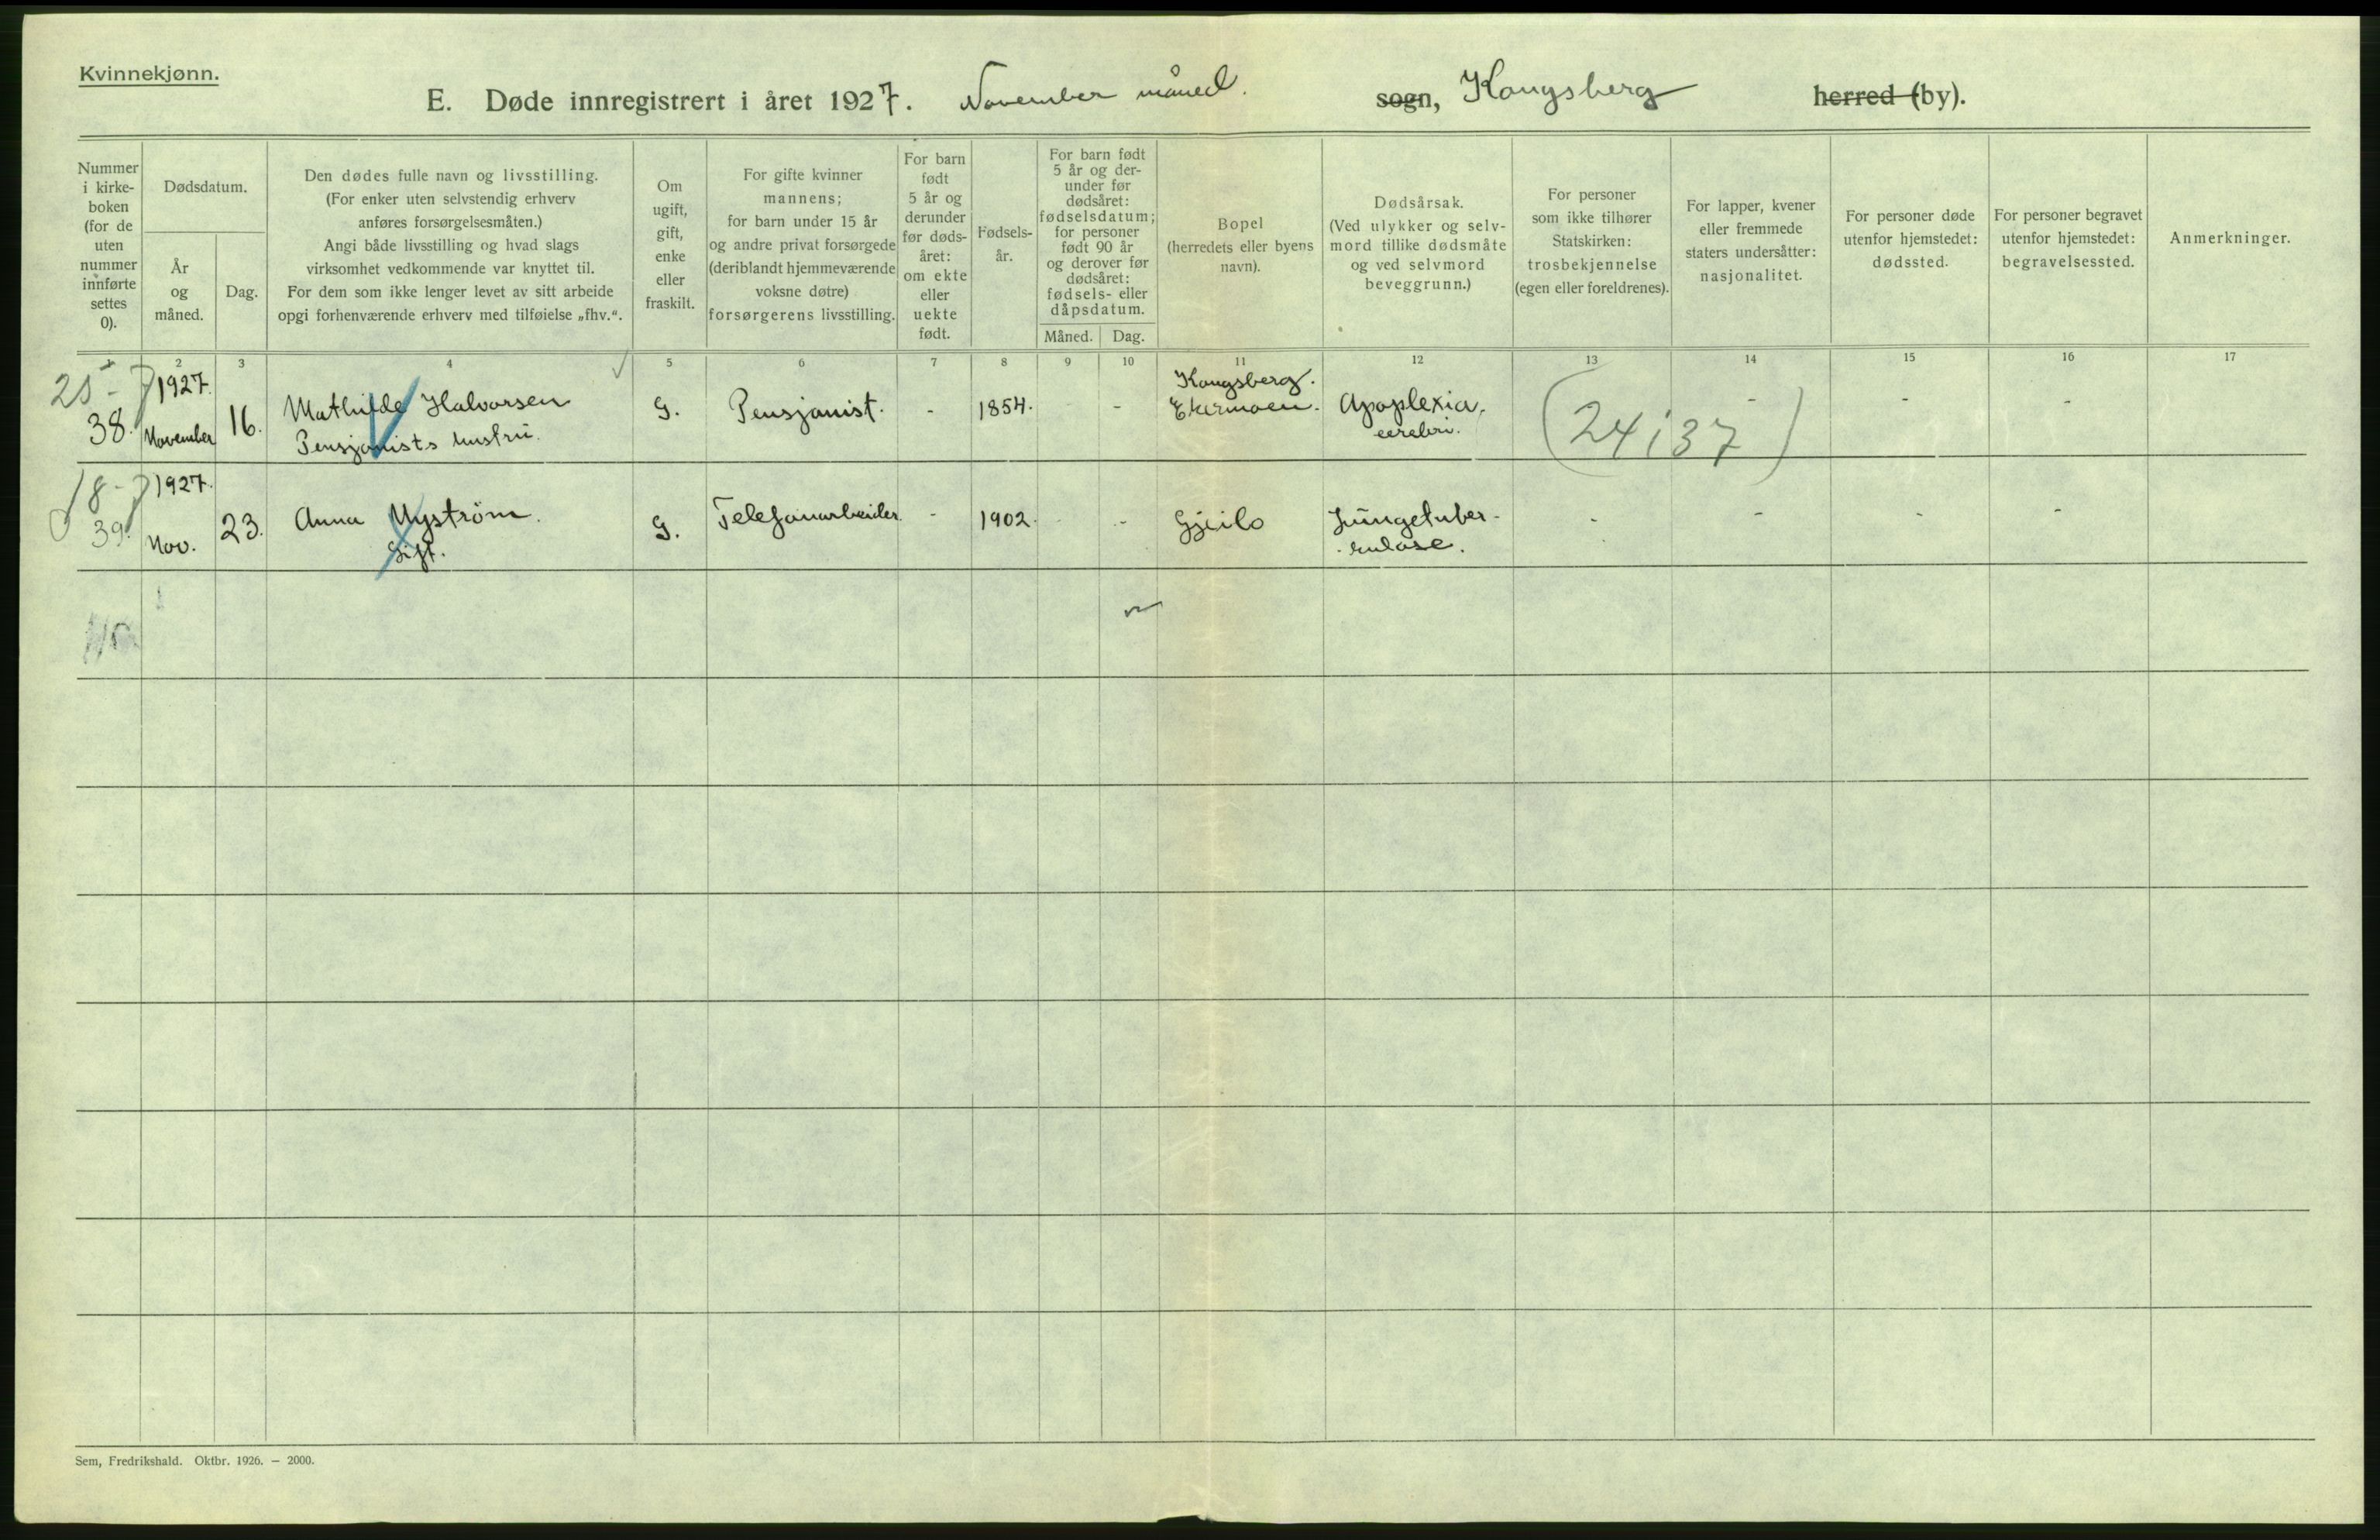 Kvinnekjønn.
E. Døde innregistrert i året 1927. November måned. sogn, Kongsberg herred (by).
Nummer
i kirke-
boken
(for de
uten
nummer
innførte
settes
0).
Dødsdatum.
År
og
måned.
Dag.
Den dødes fulle navn og livsstilling.
(For enker uten selvstendig erhverv
anføres forsørgelsesmåten.)
Angi både livsstilling og hvad slags
virksomhet vedkommende var knyttet til.
For dem som ikke lenger levet av sitt arbeide
opgi forhenværende erhverv med tilføielse „fhv.“.
Om
ugift,
gift,
enke
eller
fraskilt.
For gifte kvinner
mannens;
for barn under 15 år
og andre privat forsørgede
(deriblandt hjemmeværende
voksne døtre)
forsørgerens livsstilling.
For barn
født
5 år og
derunder
før døds-
året:
om ekte
eller
uekte
født.
Fødsels-
år.
For barn født
5 år og der-
under før
dødsåret:
fødselsdatum;
for personer
født 90 år
og derover før
dødsåret:
fødsels- eller
dåpsdatum.
Måned. Dag.
Bopel
(herredets eller byens
navn).
Dødsårsak.
(Ved ulykker og selv-
mord tillike dødsmåte
og ved selvmord
beveggrunn.)
For personer
som ikke tilhører
Statskirken:
trosbekjennelse
(egen eller foreldrenes).
For lapper, kvener
eller fremmede
staters undersåtter:
nasjonalitet.
For personer døde
utenfor hjemstedet:
dødssted.
For personer begravet
utenfor hjemstedet:
begravelsessted.
Anmerkninger.
1 2 3 4 5 6 7 8 9 10 11 12 13 14 15 16 17
25-7
38.
1927.
November
16.
Mathilde Halvorsen
Pensjonists hustru.
G.
Pensjonist.
-
1854.
-
Kongsberg.
Ekermoen.
Apoplexia
cerebri.
(24/37)
-
-
-
18-7
39.
1927.
Nov.
23.
Anna Nyström.
Gift.
G.
Telefonarbeider.
-
1902.
-
-
Gjeilo
Lungetuber-
kulose.
-
-
-
-
Sem, Fredrikshald. Oktbr. 1926. — 2000.